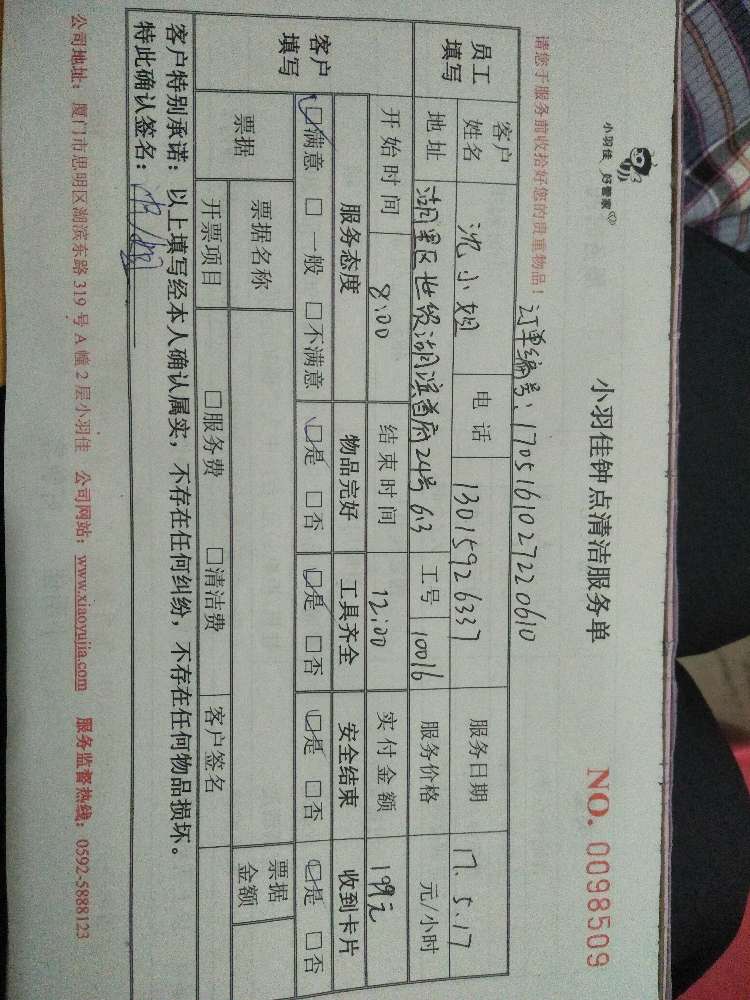 小羽佳 好管家
小羽佳钟点清洁服务单
NO. 0098509
请您于服务前收拾好您的贵重物品!
订单编号:1705161027220610
员工填写
客户姓名 沈小姐 电话 13015926337 服务日期 17.5.17
地址 湖里区世贸湖滨首府24号613 工号 10016 服务价格 元/小时
开始时间 8:00 结束时间 12:00 实付金额 199元
客户填写
服务态度 物品完好 工具齐全 安全结束 收到卡片
□满意 □一般 □不满意 □是 □否 □是 □否 □是 □否 □是 □否
票据 票据名称 票据金额
开票项目 □服务费 □清洁费 客户签名
客户特别承诺:以上填写经本人确认属实,不存在任何纠纷,不存在任何物品损坏。
特此确认签名:
公司地址:厦门市思明区湖滨东路 319 号 A 幢 2 层小羽佳 公司网站:www.xiaoyujia.com 服务监督热线:0592-5888123